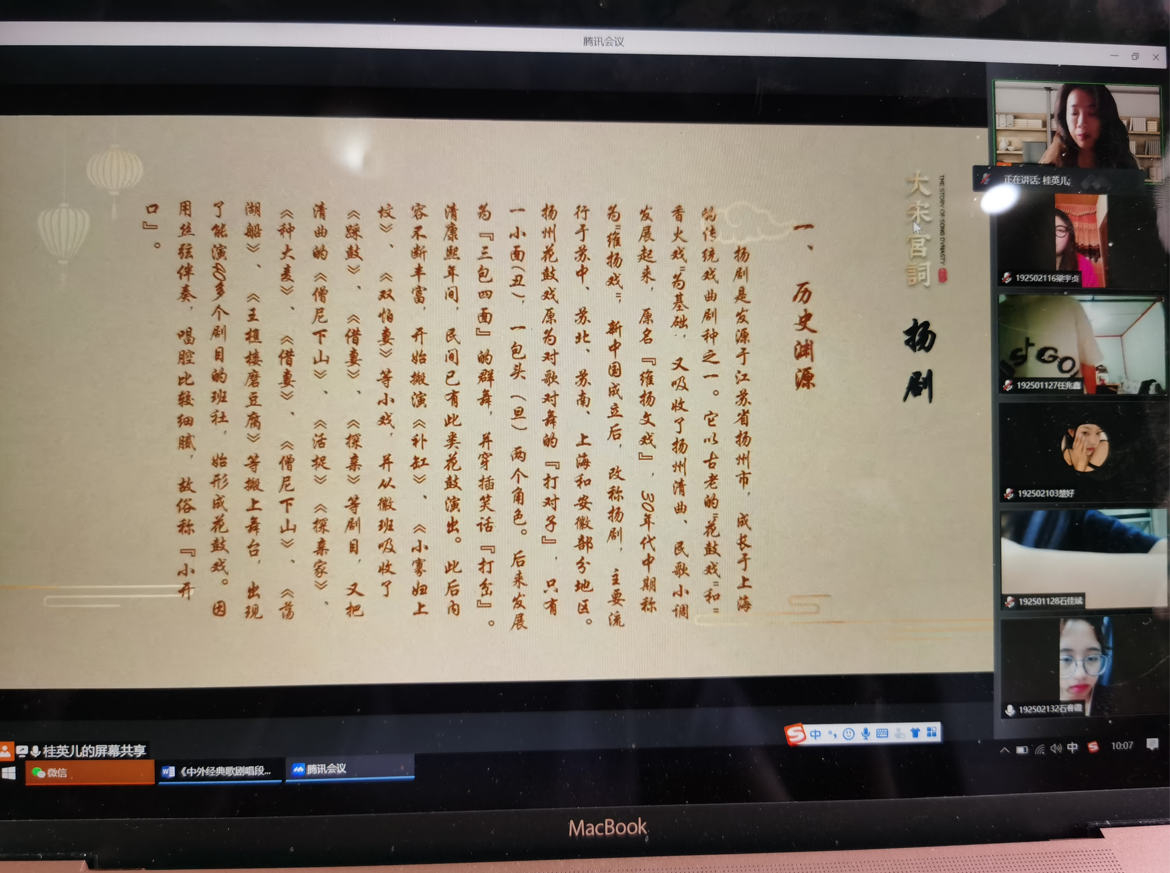 腾讯会议
大宋宫詞
THE STORY OF SONG DYNASTY
扬剧
一、历史渊源
扬剧是发源于江苏省扬州市，成长于上海
的传统戏曲剧种之一。它以古老的"花鼓戏"和"
香火戏"为基础，又吸收了扬州清曲、民歌小调
发展起来，原名『维扬文戏』，30年代中期称
为"维扬戏"，新中国成立后，改称扬剧，主要流
行于苏中、苏北、苏南、上海和安徽部分地区。
扬州花鼓戏原为对歌对舞的『打对子』，只有
一小面(丑)，一包头（旦）两个角色。后来发展
为『三包四面』的群舞，并穿插笑话『打岔』。
清康熙年间，民间已有此类花鼓演出。此后内
容不断丰富，开始搬演《补缸》、《小寡妇上
坟》、《双怕妻》等小戏，并从徽班吸收了
《踩鼓》《借妻》、《探亲》等剧目，又把
清曲的《僧尼下山》、《活捉》《探亲家》、
《种大麦》、《借妻》、《僧尼下山》、《荡
湖船》、《王樵楼磨豆腐》等搬上舞台，出现
了能演60多个剧目的班社，始形成花鼓戏。因
用丝弦伴奏，唱腔比较细腻，故俗称『小开
口』。
正在讲话: 桂英儿;
192502116梁宇贞
ST GO
192501127任兆鑫
192502103楚好
192501128石佳斌
192502132石春霞
桂英儿的屏幕共享
中
微信
《中外经典歌剧唱段...
腾讯会议
中
10:07
MacBook